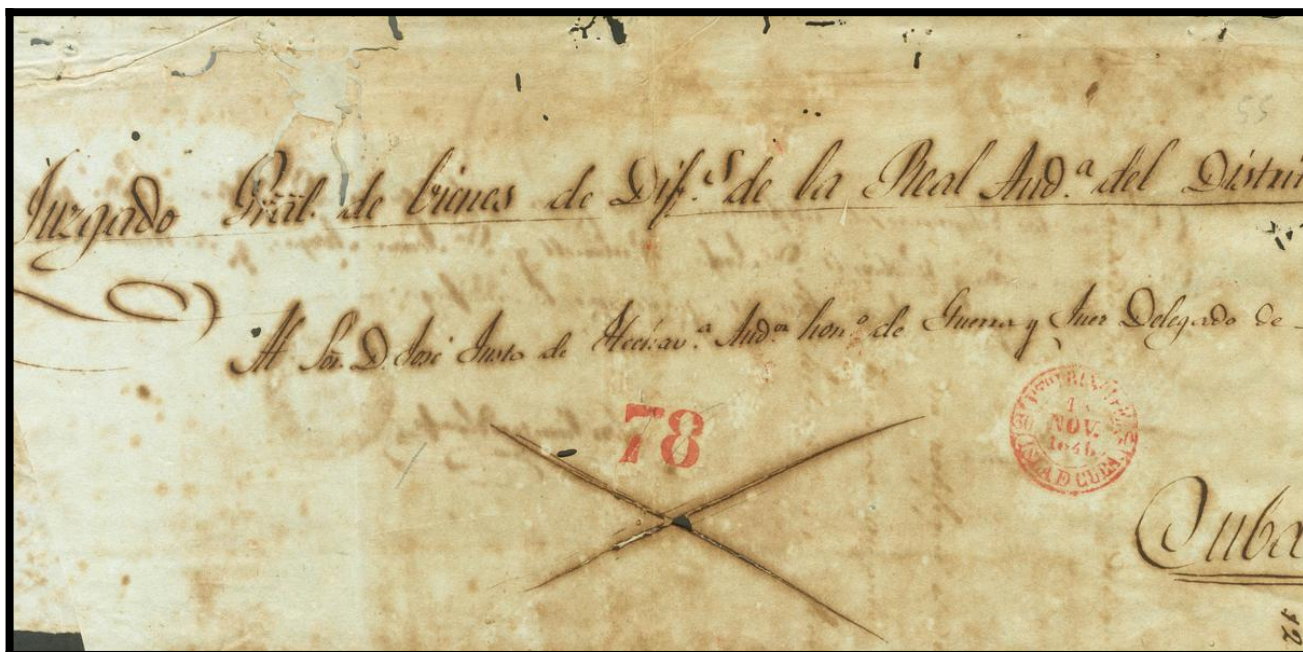 55
Juzgado Gral. de bienes de Dif.s de la Real Aud.a del Distri
Al Sor. D. José Justo de Hechav.a Aud.or hon.o de Guerra y Juez Delegado de
78
1
NOV.
1846
ISLA D CUBA
Cuba
12